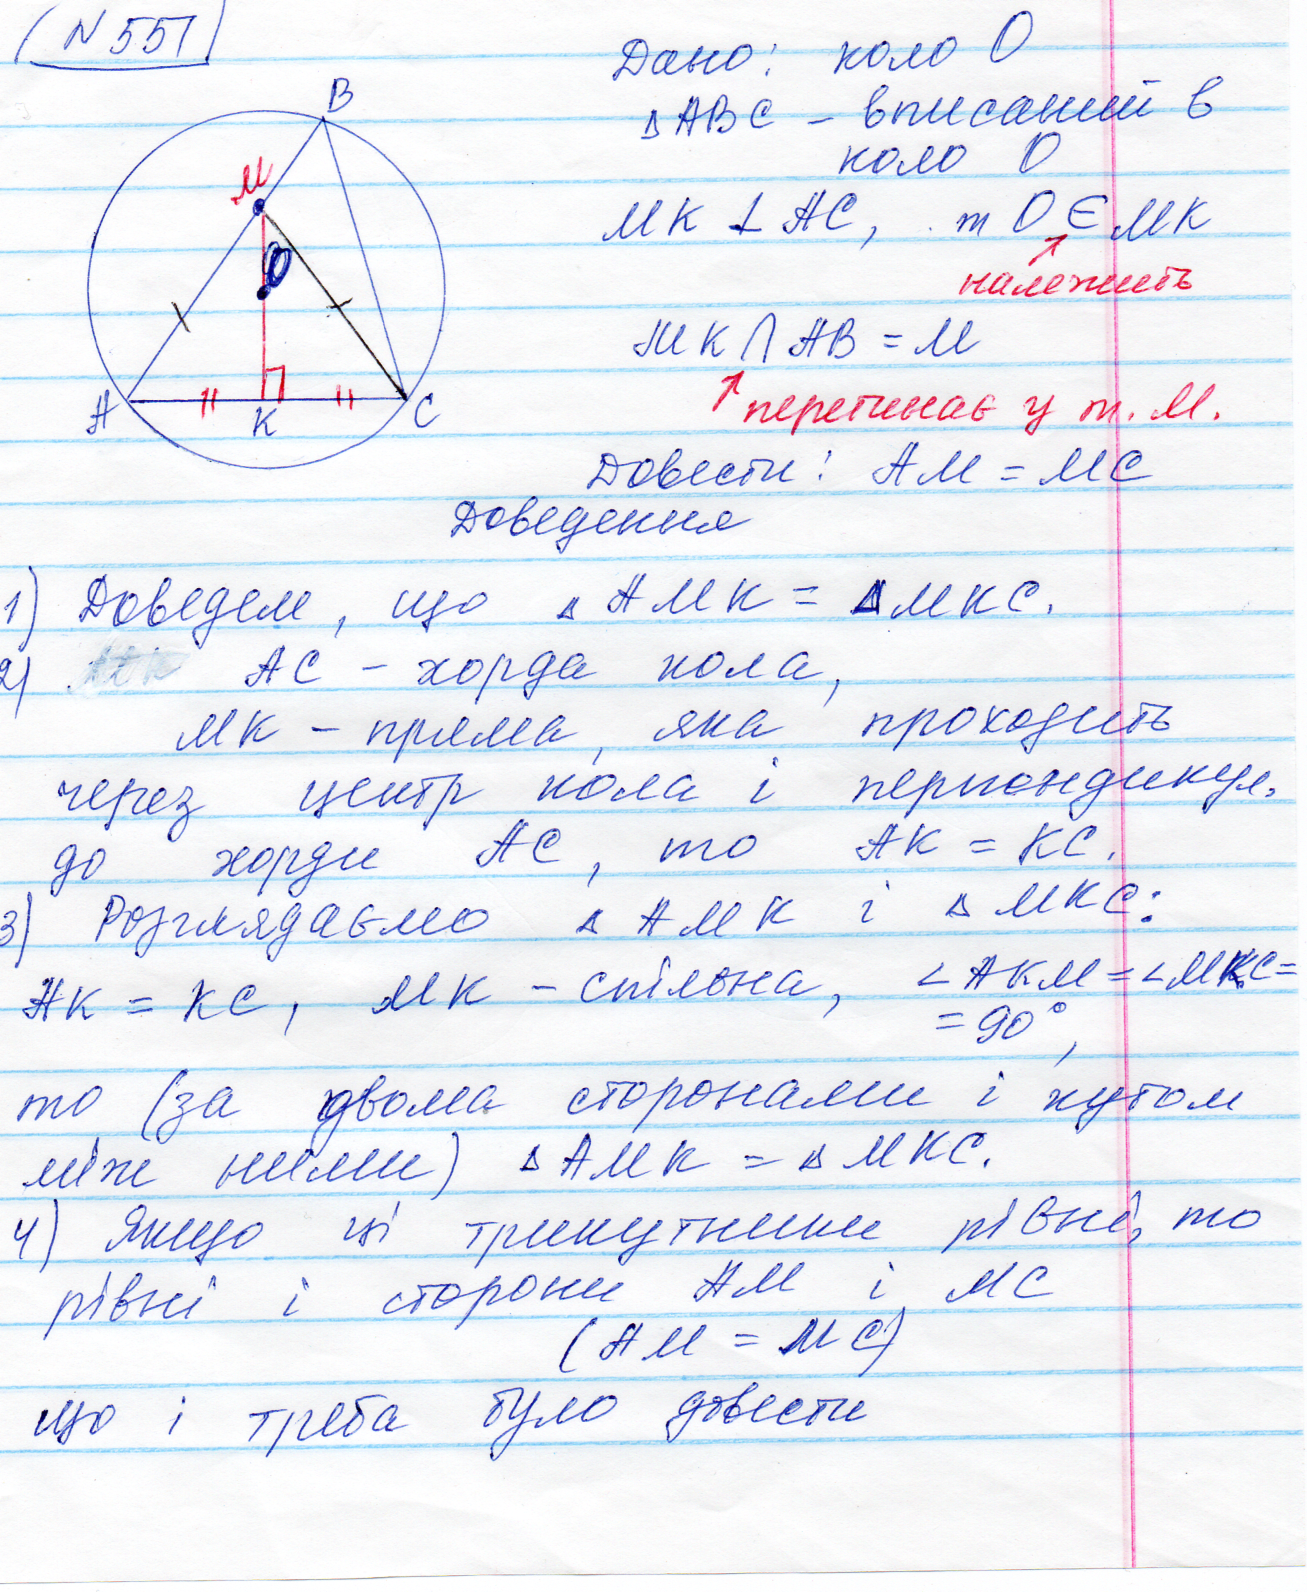 N 551
Дано: коло O
△ABC – вписаний в
коло O
MK ⊥ AC, т O ∈ MK
належить
MK ∩ AB = M
перетинає у т. М.
Довести: AM = MC
Доведення
1) Доведем, що △AMK = △MKC.
2) AC – хорда кола,
MK – пряма, яка проходить
через центр кола і перпендикул.
до хорди AC, то AK = KC.
3) Розглядаємо △AMK і △MKC:
AK = KC, MK – спільна, ∠AKM = ∠MKC =
= 90°,
то (за двома сторонами і кутом
між ними) △AMK = △MKC.
4) Якщо ці трикутники рівні, то
рівні і сторони AM і MC
(AM = MC)
що і треба було довести
B
M
O
A
K
C